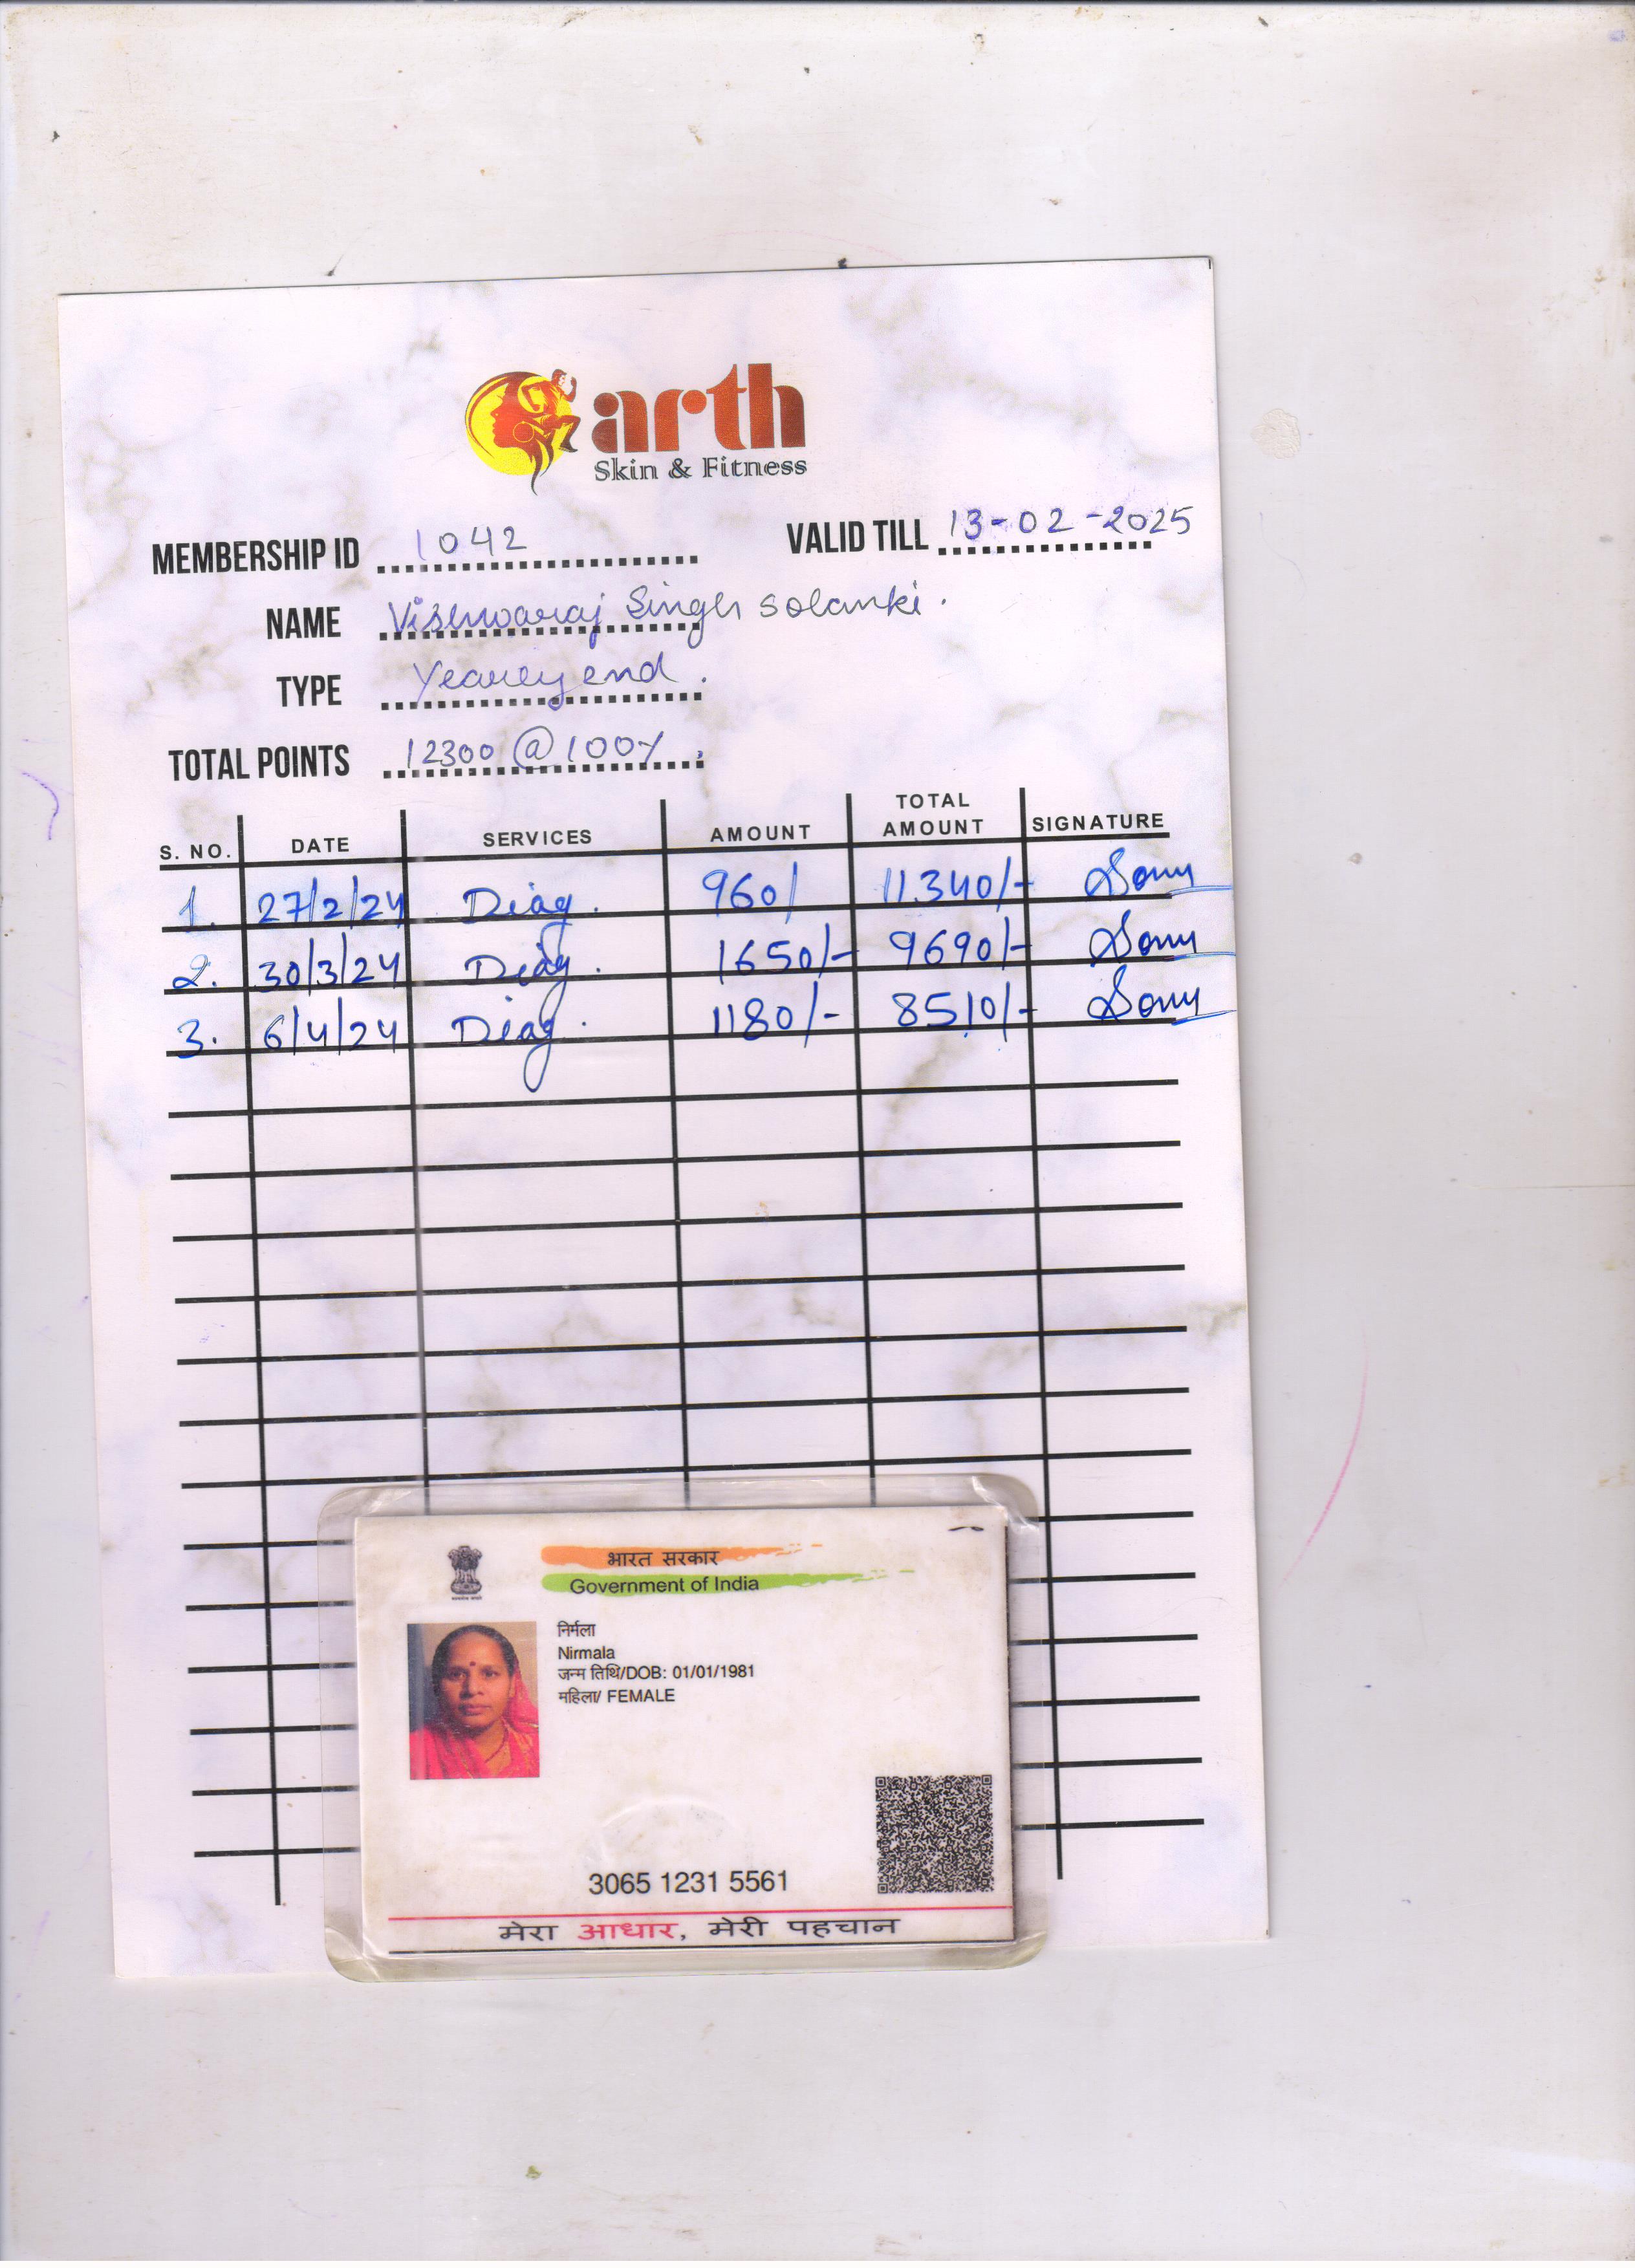 arth
Skin & Fitness
MEMBERSHIP ID 1042 VALID TILL 13-02-2025
NAME Vishwaraj Singh Solanki.
TYPE Yearly end.
TOTAL POINTS 12300 @ 100%
S. NO. DATE SERVICES AMOUNT TOTAL AMOUNT SIGNATURE
1. 27/2/24 Diag. 960/ 11340/- Sony
2. 30/3/24 Diag. 1650/- 9690/- Sony
3. 6/4/24 Diag. 1180/- 8510/- Sony
भारत सरकार
Government of India
निर्मला
Nirmala
जन्म तिथि/DOB: 01/01/1981
महिला/ FEMALE
3065 1231 5561
मेरा आधार, मेरी पहचान